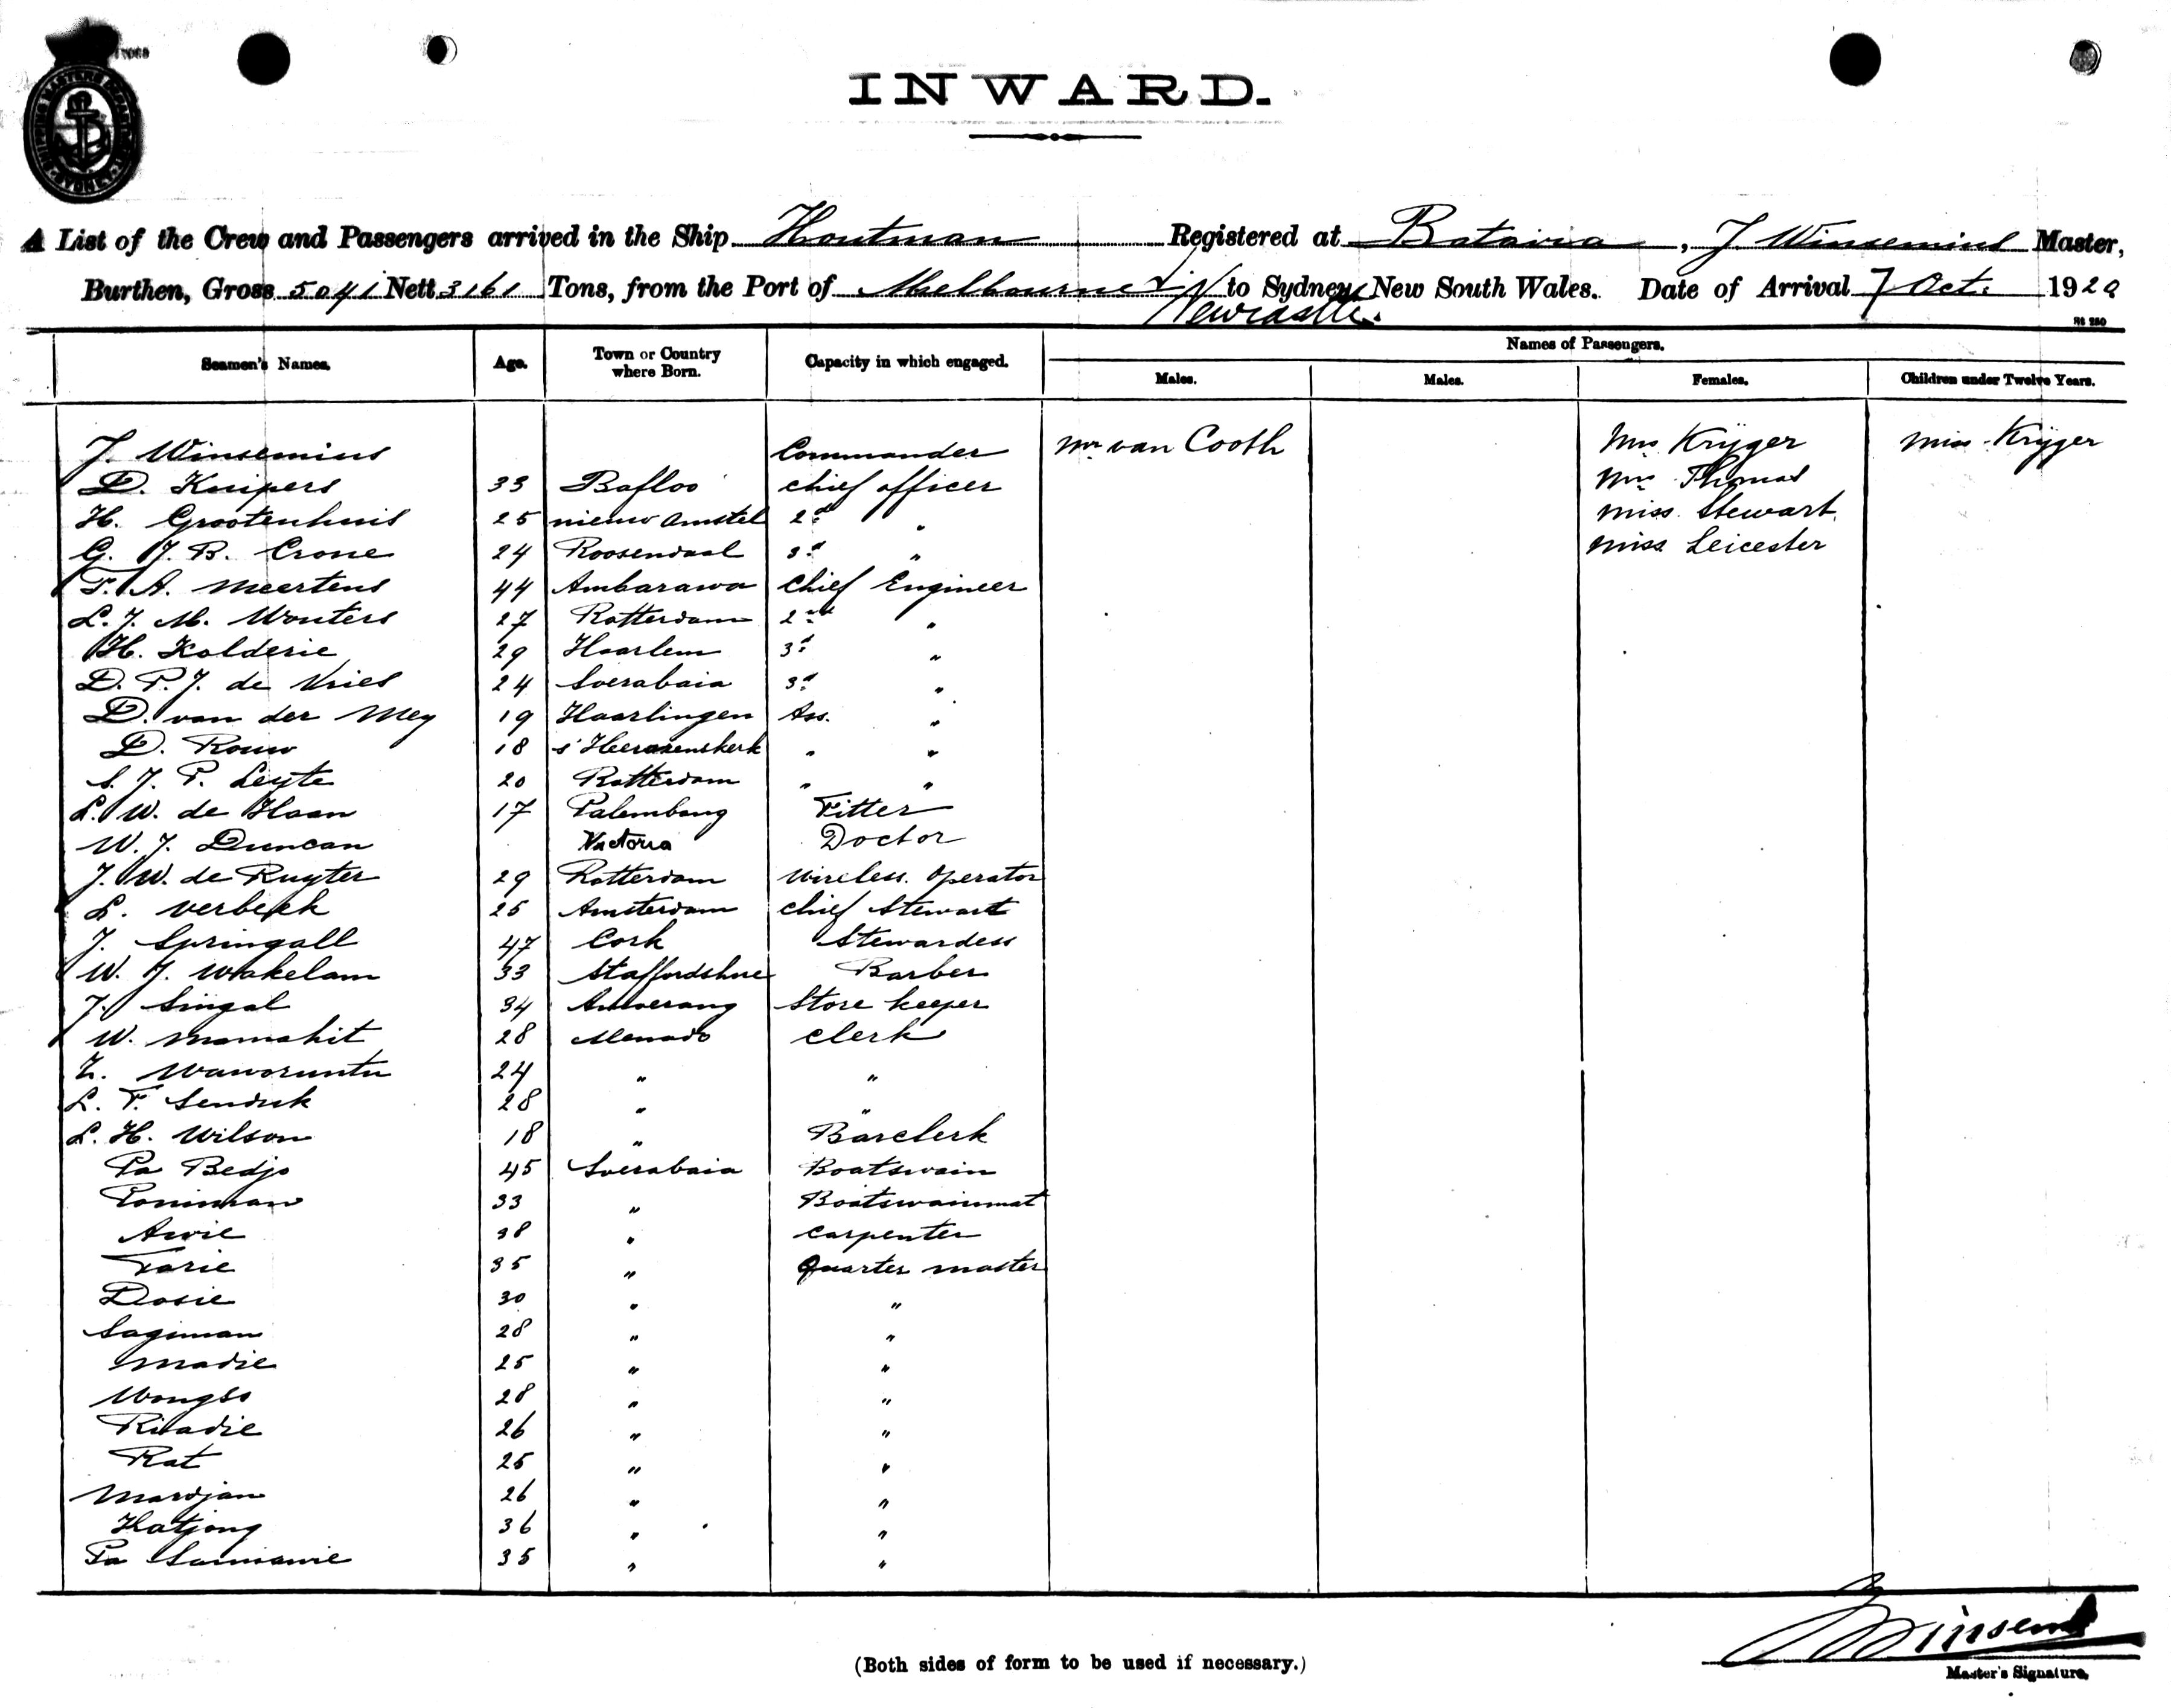 INWARD.
A List of the Crew and Passengers arrived in the Ship Houtman Registered at Batavia, J. Winsemius Master,
Burthen, Gross 5041 Nett 3161 Tons, from the Port of Melbourne & Newcastle. to Sydney New South Wales. Date of Arrival 7 Oct. 1920
Seamen's Names. Age. Town or Country where Born. Capacity in which engaged. Names of Passengers.
Males. Males. Females. Children under Twelve Years.
J. Winsemius Commander Mr van Cooth Mrs Krÿger Miss Krÿger
D. Kuipers 33 Bafloo chief officer Mrs Thomas
H. Grootenhuis 25 nieuw Amstel 2d " Miss Stewart
G. J. B. Crone 24 Roosendaal 3d " Miss Leicester
F. A. Meertens 44 Ambarawa Chief Engineer
L. J. M. Wouters 27 Rotterdam 2nd "
H. Kolderie 29 Haarlem 3d "
D. P. J. de Vries 24 Soerabaia 3d "
D. van der Mey 19 Haarlingen Ass. "
D. Rouw 18 " "
S. J. P. Leyte 20 Rotterdam " "
L. W. de Haan 17 Palembang Fitter
W. J. Duncan Victoria Doctor
J. W. de Ruyter 29 Rotterdam wireless. Operator
L. Verbeek 25 Amsterdam chief Stewart
J. Springall 47 Cork Stewardess
W. J. Wakelam 33 Staffordshire Barber
J. Singal 34 Amoerang Store keeper
W. Mamahit 28 Menado clerk
Z. Waworuntu 24 " "
L. F. Senduk 28 " "
L. H. Wilson 18 " Barclerk
Pa Bedjo 45 Soerabaia Boatswain
Poniman 33 " Boatswainmat
Awie 38 " carpenter
Tarie 35 " Quarter master
Dosie 30 " "
Sagiman 28 " "
Madie 25 " "
Wongso 28 " "
Rivadie 26 " "
Rat 25 " "
Mardjan 26 " "
Hatjong 36 " "
Pa 35 " "
(Both sides of form to be used if necessary.)
Winsemius
Master's Signature.